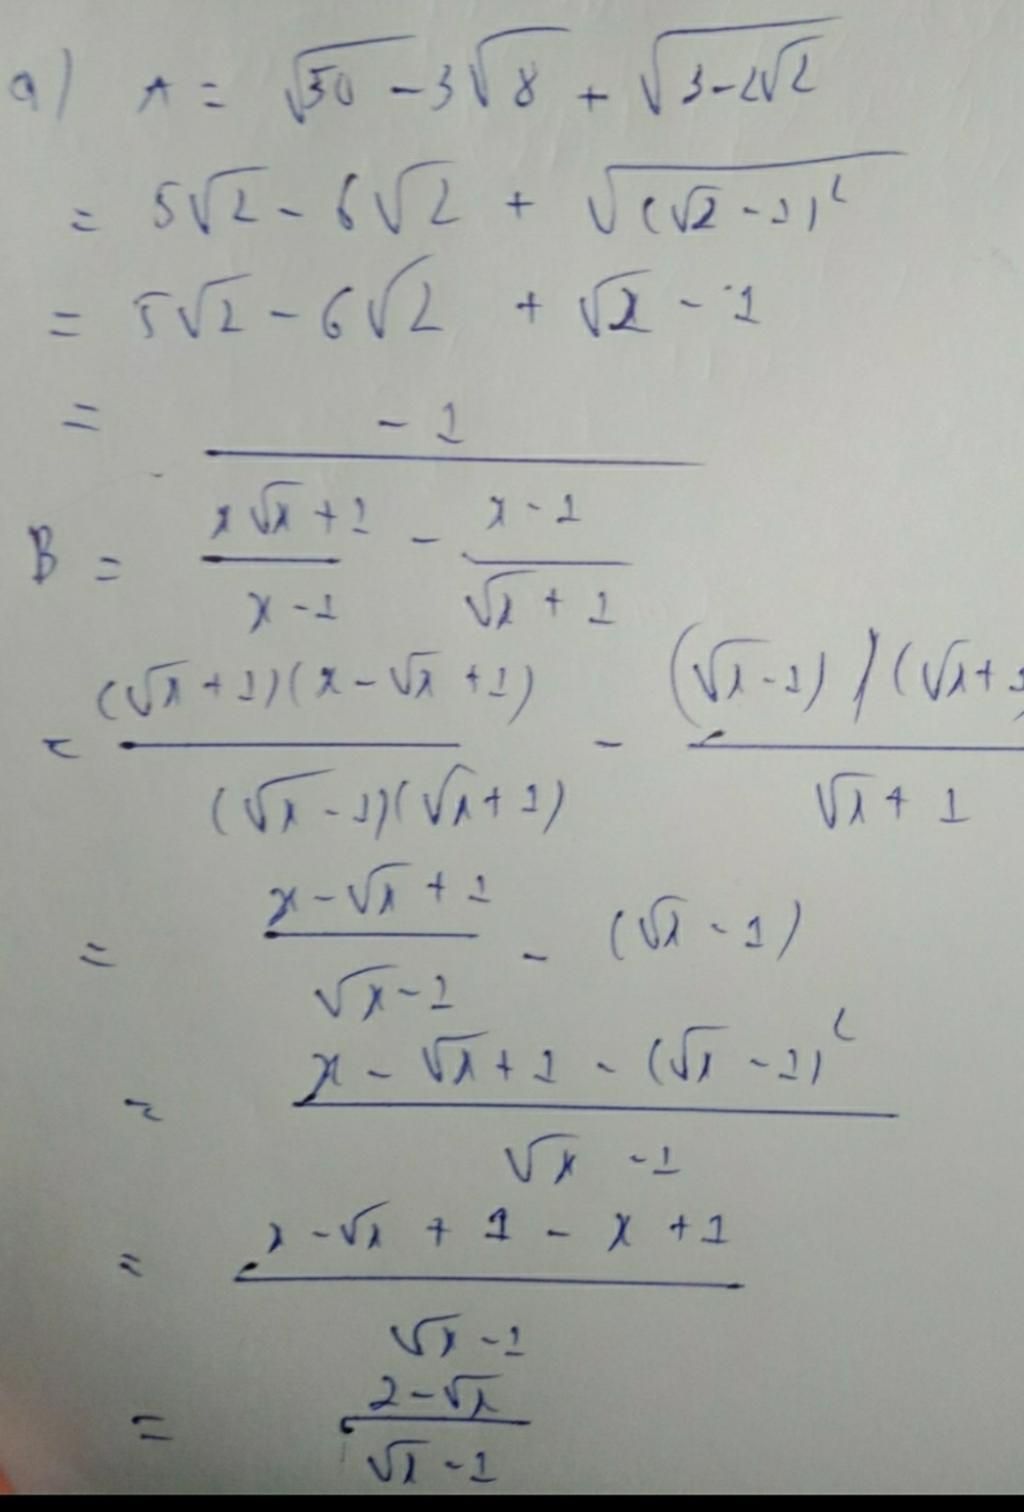 a) A = √50 - 3√8 + √(3-2√2)
= 5√2 - 6√2 + √((√2 - 1)²)
= 5√2 - 6√2 + √2 - 1
= -1
B = (x√x + 1)/(x - 1) - (x - 1)/(√x + 1)
= ((√x + 1)(x - √x + 1))/((√x - 1)(√x + 1)) - ((√x - 1)(√x + 1))/(√x + 1)
= (x - √x + 1)/(√x - 1) - (√x - 1)
= (x - √x + 1 - (√x - 1)²)/(√x - 1)
= (x - √x + 1 - x + 1)/(√x - 1)
= (2 - √x)/(√x - 1)